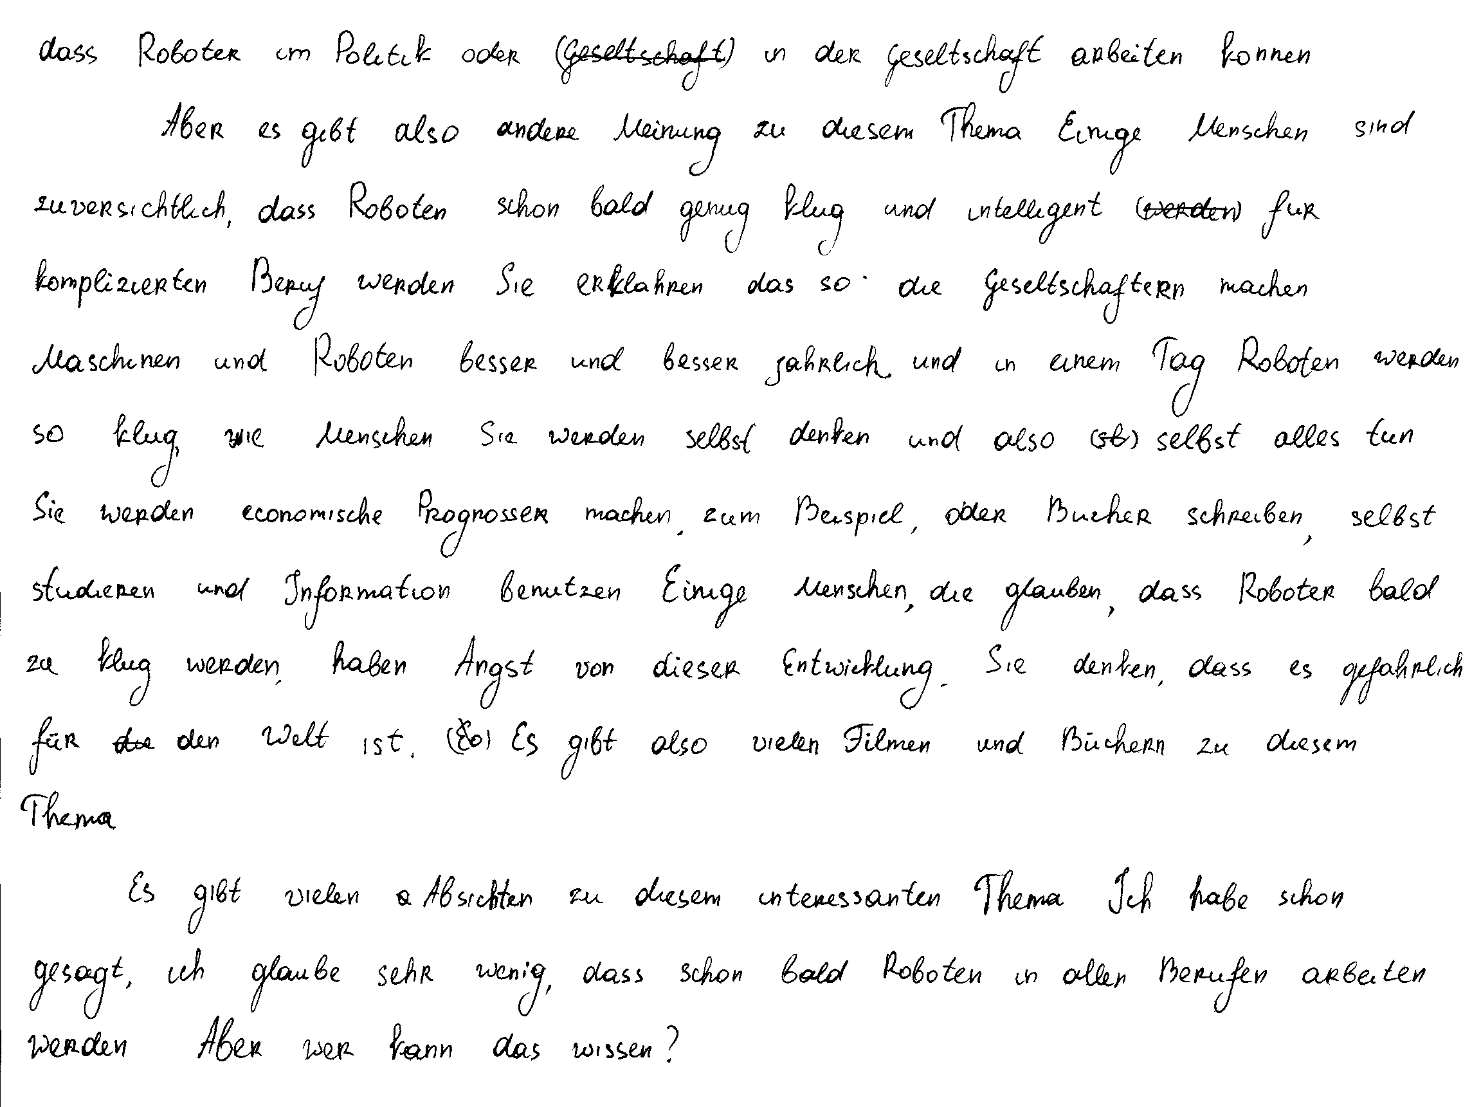 dass Roboter im Politik oder (Geseltschaft) in der Geseltschaft arbeiten konnen
Aber es gibt also andere Meinung zu diesem Thema Einige Menschen sind
zuversichtlich, dass Roboten schon bald genug klug und intelligent (werden) fur
komplizierten Beruf werden Sie erklahren das so: die Geseltschaftern machen
Maschinen und Roboten besser und besser jahrlich, und in einem Tag Roboten werden
so klug, wie Menschen Sie werden selbst denken und also (sb) selbst alles tun
Sie werden economische Prognosser machen, zum Beispiel, oder Bucher schreiben, selbst
studieren und Information benutzen Einige Menschen, die glauben, dass Roboter bald
zu klug werden, haben Angst von dieser Entwicklung. Sie denken, dass es gefahrlich
für die den Welt ist. (Eo) Es gibt also vielen Filmen und Büchern zu diesem
Thema
Es gibt vielen a Absichten zu diesem interessanten Thema Ich habe schon
gesagt, ich glaube sehr wenig, dass schon bald Roboten in allen Berufen arbeiten
werden Aber wer kann das wissen?